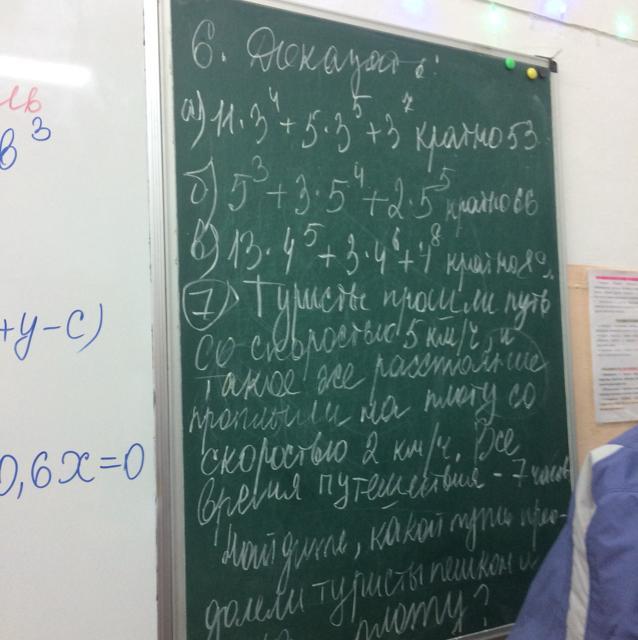 ль
в³
+y-c)
0,6x=0
6. Доказать:
а) 11·3⁴+5·3⁵+3⁷ кратно 53
б) 5³+3·5⁴+2·5⁵ кратно 66
в) 13·4⁵+3·4⁶+4⁸ кратно 89.
7) Туристы прошли путь
со скоростью 5 км/ч, и
такое же расстояние
проплыли на плоту со
скоростью 2 км/ч. Все
время путешествия - 7 часов
Найдите, какой путь прео-
долели туристы пешком и
плоту?